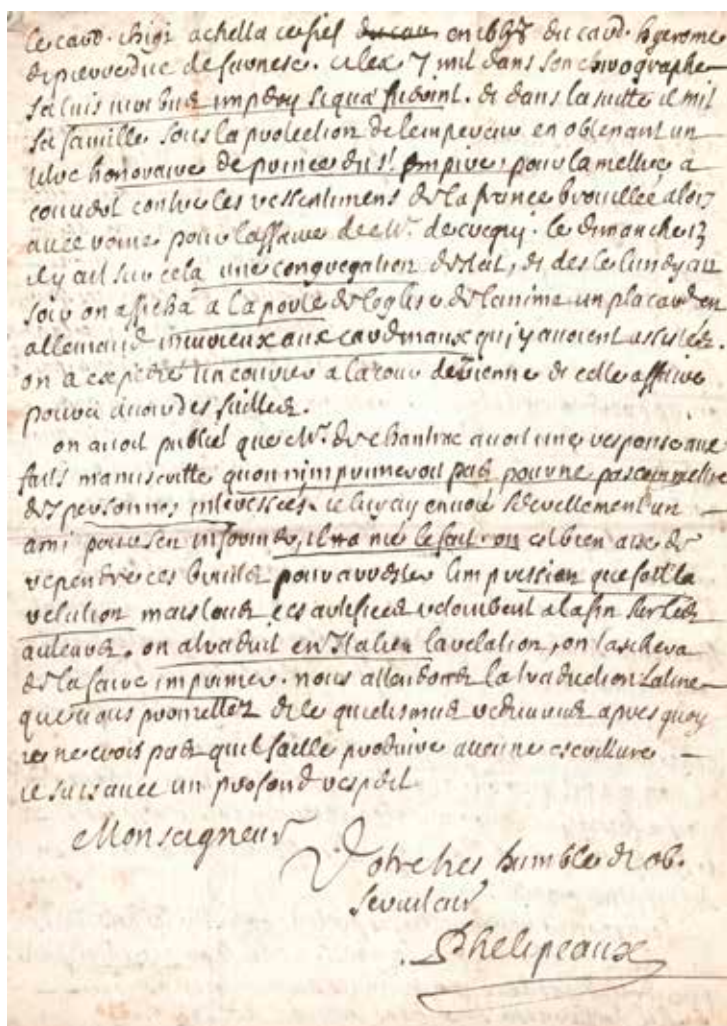 le card. chigi achetta ce fief du car en 1658 du card. hyerome
de pierre duc de farnese. alex 7 mit dans son chirographe
et dans la suitte il mit
sa famille sous la protection de lempereur en obtenant un
titre honoraire de prince du st. empire, pour la mettre a
couvert contre les ressentimens de la france brouillée alors
avec rome pour laffaire de Mr. de crequy. le dimanche 13
il y eut sur cela une congregation destat, et des le lundy au
soir on afficha a la porte de leglise de lanima un placard en
allemand injurieux aux cardinaux qui y avoient assisté.
on a expedié un courrier a la cour de vienne et cette affaire
pourra avoir des suittes.
on avoit publié que Mr. de chantrac avoit une response aux
faits manuscritte quon nimprimeroit pas pour ne pas commettre
des personnes interessées. je luy ay envoié secrettement un
ami pour sen informer, il ma nié le fait. on est bien aise de
rependre ces bruits pour arrester limpression que fait la
relation mais tous ces artifices retombent a la fin sur les
auteurs. on a traduit en Italien la relation, on taschera
de la faire imprimer. nous attendons la traduction Latine
que vous promettez et le quietismus redivivus apres quoy
je ne crois pas quil faille produire aucune escritture
je suis avec un profond respect
Monseigneur
Votre tres humble et ob.
serviteur
Phelipeaux